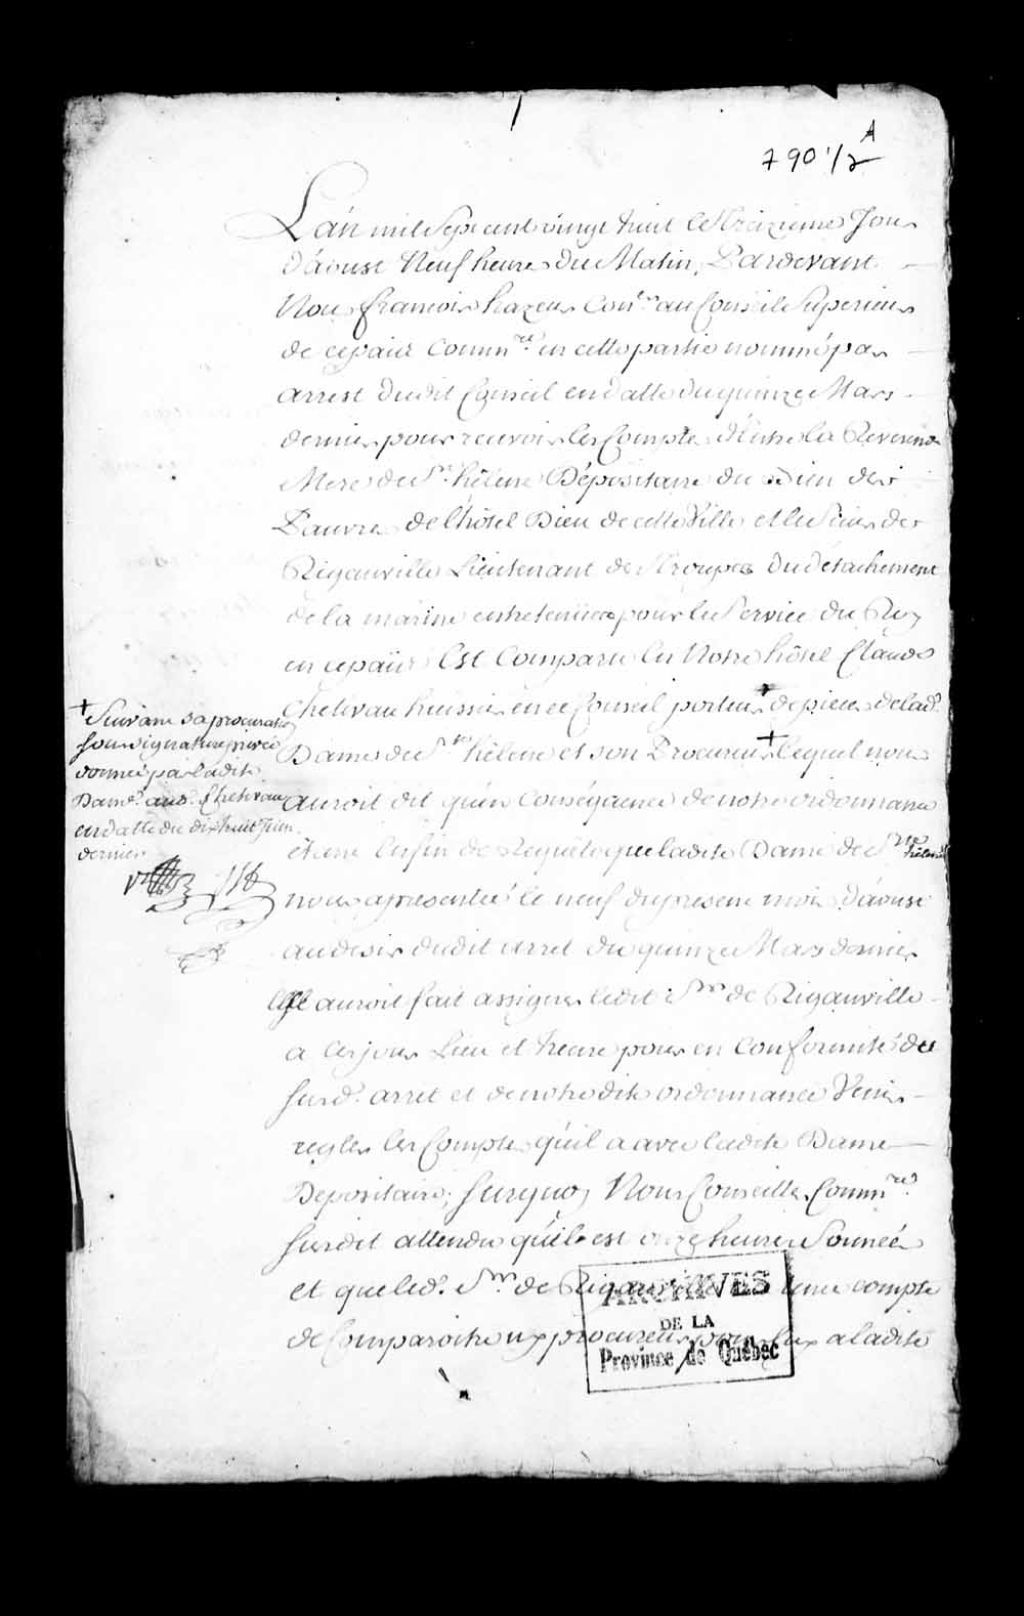 790 1/2 A
L'an mil Sept cent vingt huit le treizieme Jour
d'aoust Neuf heures du Matin, Pardevant
Nous francois hazeur Con.er au Conseil Superieur
de ce païs Comm.re en cette partie nommé par
arrest dudit Conseil en datte du quinze Mars
dernier pour recevoir les Comptes d'Entre la Reverende
Mere de S.te hélene Dépositaire du Bien des
Pauvres de l'hôtel Dieu de cette Ville et le Sieur de
Rigauville Lieutenant des troupes du détachement
de la marine entretenües pour le Service du Roy
en ce païs Est Comparu en Notre hôtel Claude
Chetivau huissier en ce Conseil porteur de pieces de lad.e
Dame de S.te hélene et son Procureur + lequel nous
auroit dit qu'en conséquence de notre ordonnance
étant Enfin de Requête que ladite Dame de S.te hélene
nous a presentée le neuf du present mois d'aoust
au desir dudit arret du quinze Mars dernier
Elle auroit fait assigner ledit S.r de Rigauville
a ces jour Lieu et heure pour en Conformité du
Susd.t arret et de notre dite ordonnance Venir
regler les Comptes qu'il a avec ladite Dame
Depositaire, Surquoy Nous Conseiller Comm.re
Susdit attendu qu'il est onze heures Sonnées
et que led.t S.r de Rigauville tenu compte
de Comparoitre ny procureur pour luy a ladite
+ Suivant sa procuration
sous signature privée
donnée par ladite
Dame aud. Chetivau
en datte du dix huit Juin
dernier
ARCHIVES
DE LA
Province de Québec